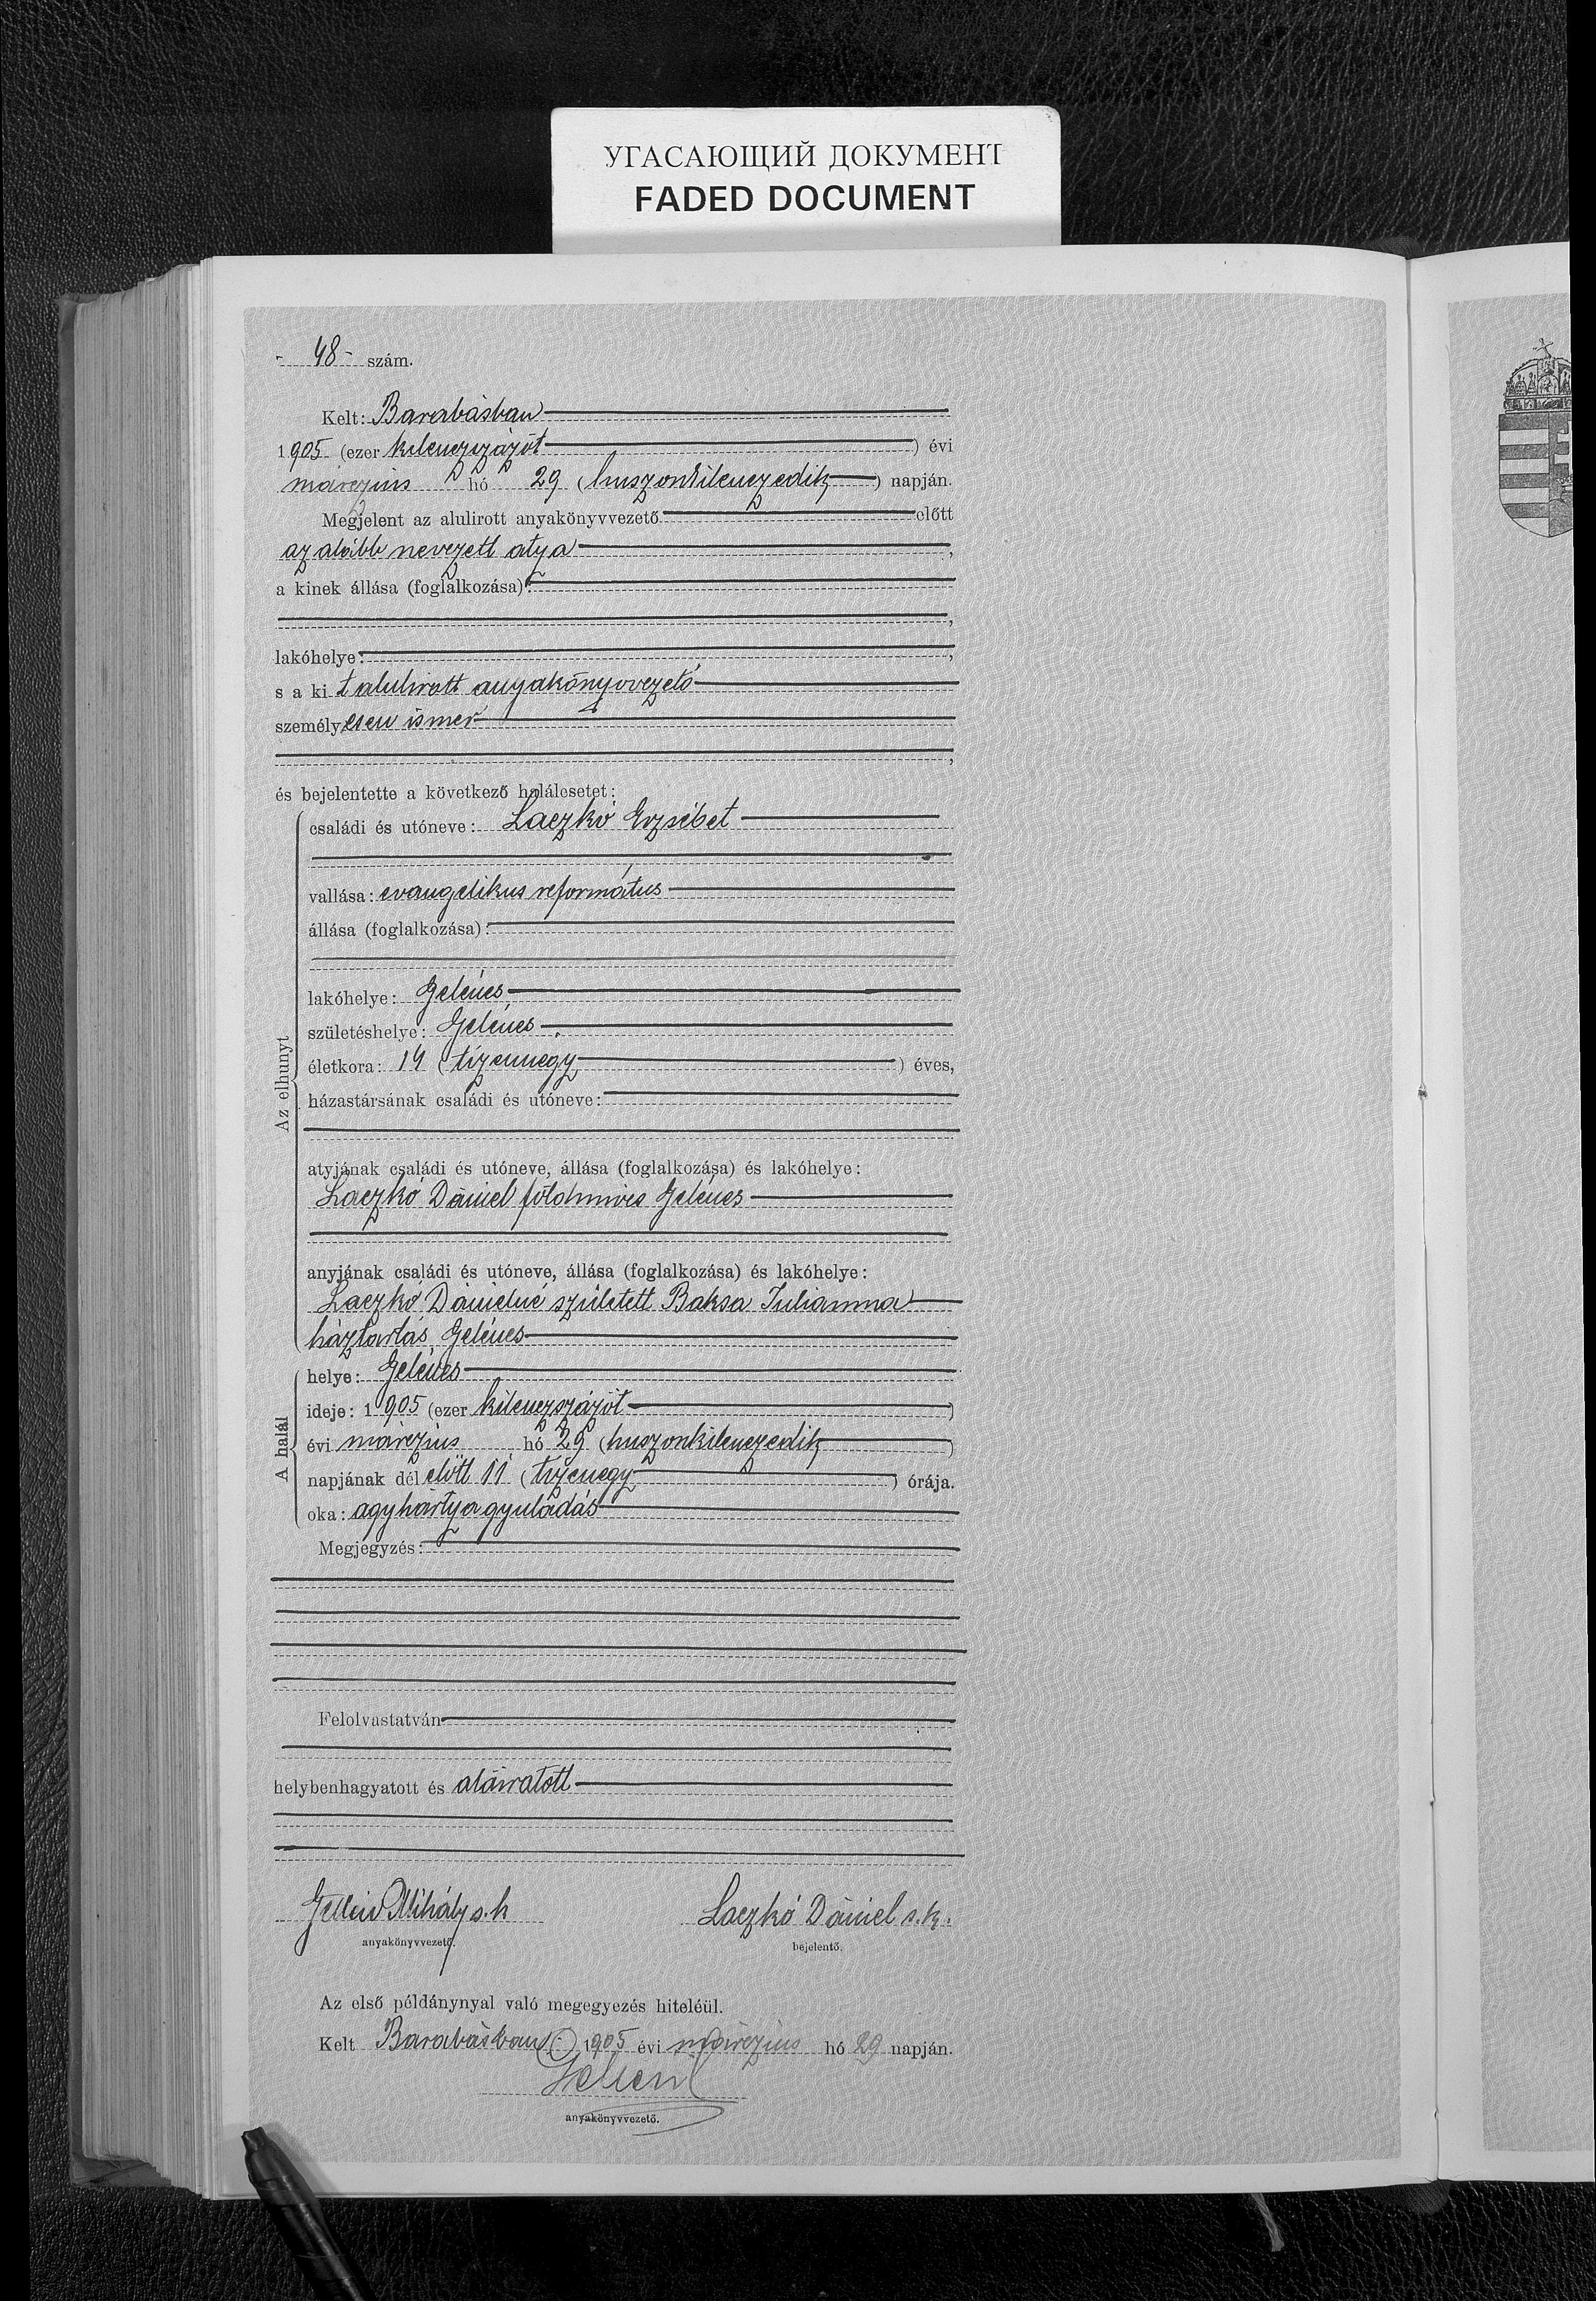 УГАСАЮЩИЙ ДОКУМЕНТ
FADED DOCUMENT
- 48 - szám.
Kelt: Barabásban
1905 (ezer kilenczszázöt) évi
márczius hó 29 (huszonkilenczedik) napján.
Megjelent az alulirott anyakönyvvezető előtt
az alább nevezett atya,
a kinek állása (foglalkozása):
lakóhelye:
s a kit alulirott anyakönyvvezető
személyesen ismer
és bejelentette a következő halálesetet:
Az elhunyt
családi és utóneve: Laczkó Erzsébet
vallása: evangelikus református
állása (foglalkozása):
lakóhelye: Gelénes
születéshelye: Gelénes
életkora: 14 (tizennegy) éves,
házastársának családi és utóneve:
atyjának családi és utóneve, állása (foglalkozása) és lakóhelye:
Laczkó Dániel földmives Gelénes
anyjának családi és utóneve, állása (foglalkozása) és lakóhelye:
Laczkó Dánielné született Baksa Julianna
háztartás Gelénes
A halál
helye: Gelénes
ideje: 1905 (ezer kilenczszázöt)
évi márczius hó 29 (huszonkilenczedik)
napjának dél előtt 11 (tizenegy) órája.
oka: agyhártyagyuladás
Megjegyzés:
Felolvastatván
helybenhagyatott és aláiratott
Mihály s. k
Laczkó Dániel s. k.
anyakönyvvezető.
bejelentő.
Az első példánynyal való megegyezés hiteléül.
Kelt Barabásban 1905 évi márczius hó 29 napján.
anyakönyvvezető.